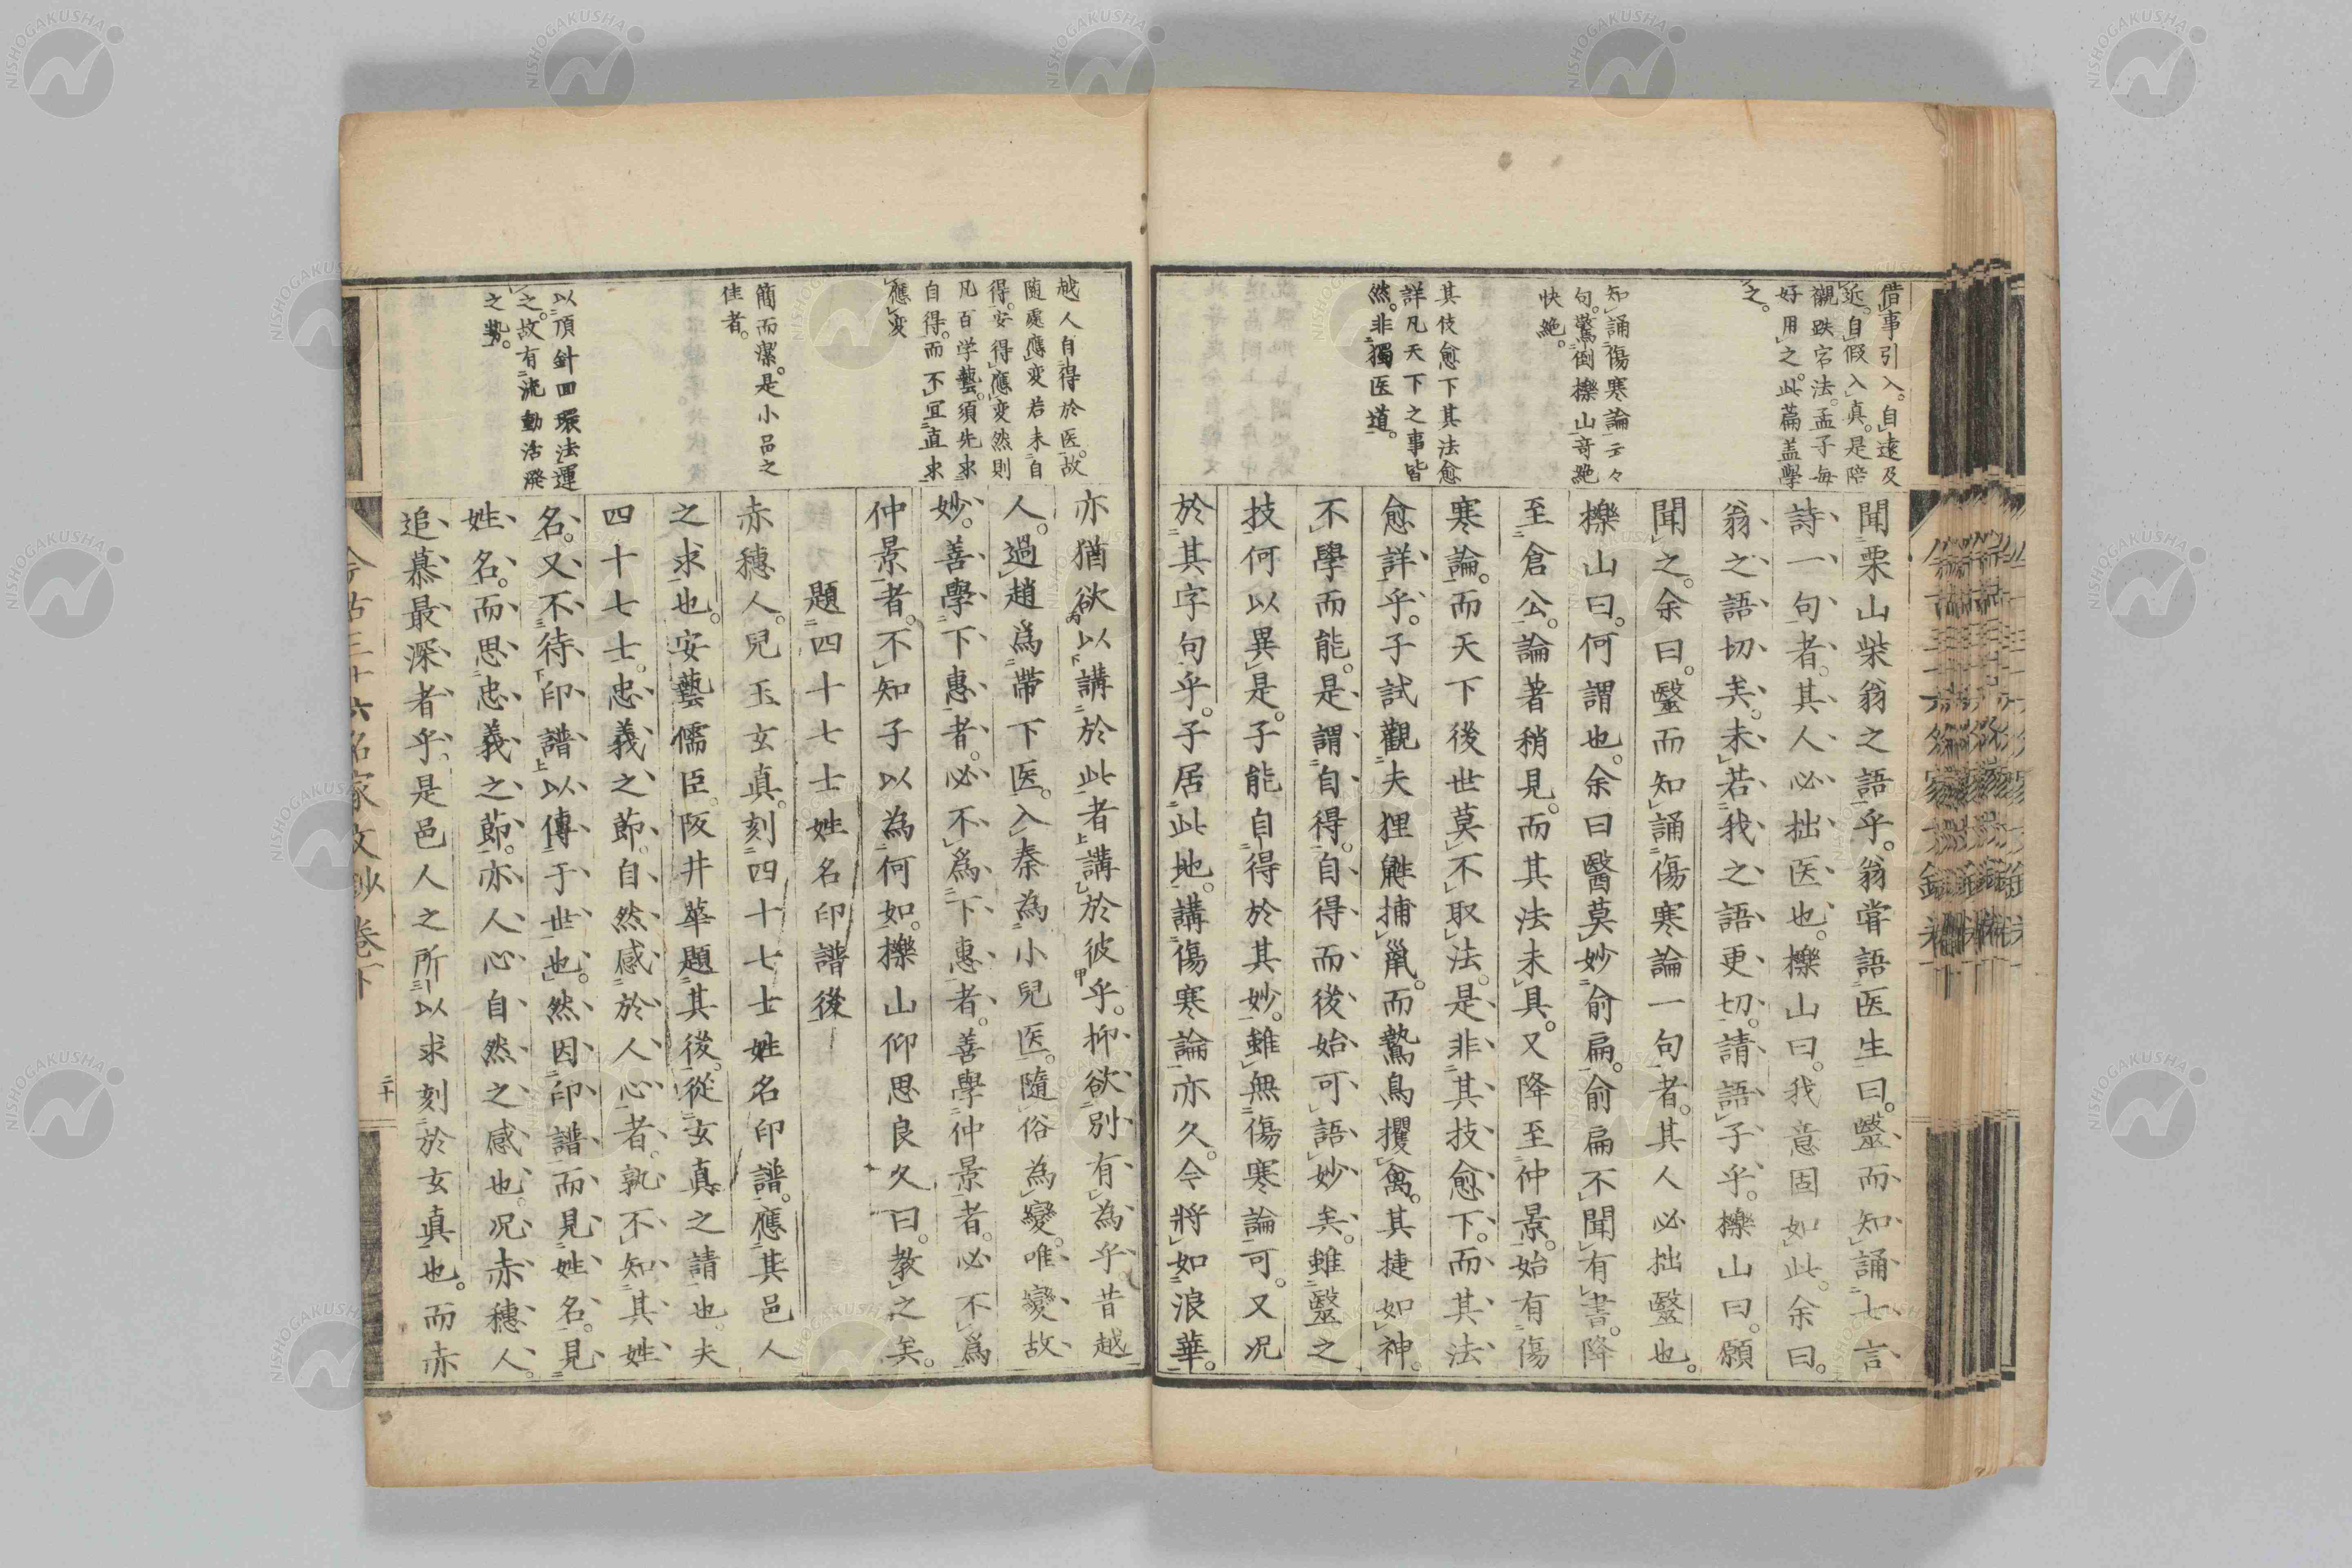 借事引入。自遠及
近。自假入真。是陪
襯跌宕法。孟子每
好用之。此篇盖學
之。
知誦傷寒論云々
句。驚倒櫟山。奇絶
快絶。
其伎愈下其法愈
詳凡天下之事皆
然。非獨医道。
聞栗山柴翁之語乎。翁甞語医生曰。毉而知誦七言
詩一句者。其人必拙医也。櫟山曰。我意固如此。余曰。
翁之語切矣。未若我之語更切。請語子乎。櫟山曰。願
聞之。余曰。毉而知誦傷寒論一句者。其人必拙毉也。
櫟山曰。何謂也。余曰醫莫妙俞扁。俞扁不聞有書。降
至倉公。論著稍見。而其法未具。又降至仲景。始有傷
寒論。而天下後世莫不取法。是非其技愈下。而其法
愈詳乎。子試觀夫狸鼪捕鼠。而鷙鳥攫禽。其捷如神。
不學而能。是謂自得。自得而後始可語妙矣。雖毉之
技何以異是。子能自得於其妙。雖無傷寒論可。又况
於其字句乎。子居此地。講傷寒論亦久。今將如浪華。
越人自得於医。故
随處應変若未自
得。安得應変然則
凡百学藝。須先求
自得。而不宜直求
應変
簡而潔。是小品之
佳者。
以頂針回環法運
之。故有流動活溌
之勢。
亦猶欲以講於此者講於彼乎。抑欲別有為乎昔越
人。過趙為帶下医。入秦為小兒医。隨俗為變。唯變故
妙。善學下惠者。必不爲下惠者。善學仲景者。必不爲
仲景者。不知子以為何如。櫟山仰思良久曰。教之矣。
題四十七士姓名印譜後
赤穗人。兒玉玄真。刻四十七士姓名印譜。應其邑人
之求也。安藝儒臣。阪井華題其後。從玄真之請也。夫
四十七士。忠義之節。自然感於人心者。孰不知其姓
名。又不待印譜以傳于世也。然因印譜而見姓名。見
姓名。而思忠義之節。亦人心自然之感也。况赤穗人。
追慕最深者乎。是邑人之所以求刻於玄真也。而赤
今古三十六名家文鈔卷下
二十